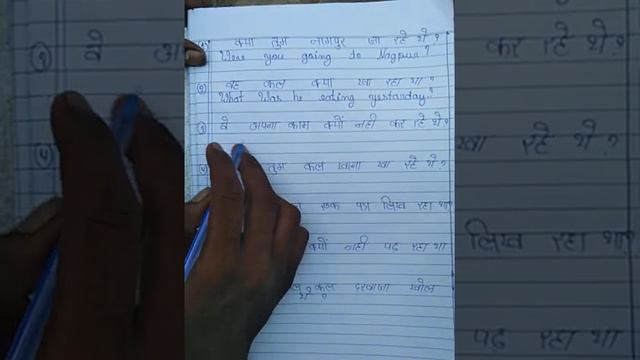 (१) क्या तुम नागपुर जा रहे थे?
Were you going to Nagpur?
(२) वह कल क्या खा रहा था?
What was he eating yestarday?
(३) वे अपना काम क्यों नही कर रहे थे?
(४) तुम कल खाना खा रहे थे?
एक पत्र लिख रहा था?
क्यों नही पढ़ रहा था
कल दरवाजा खोल
थे?